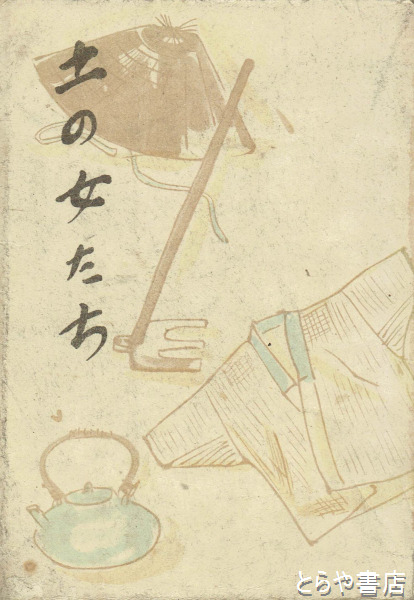 土の女たち
とらや書店